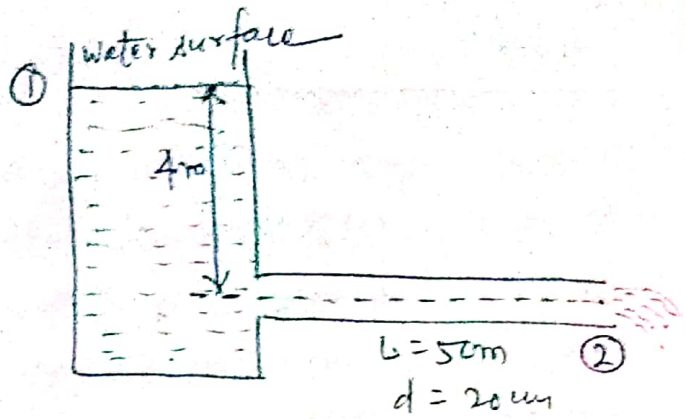 water surface
①
4m
L = 50m
②
d = 20cm